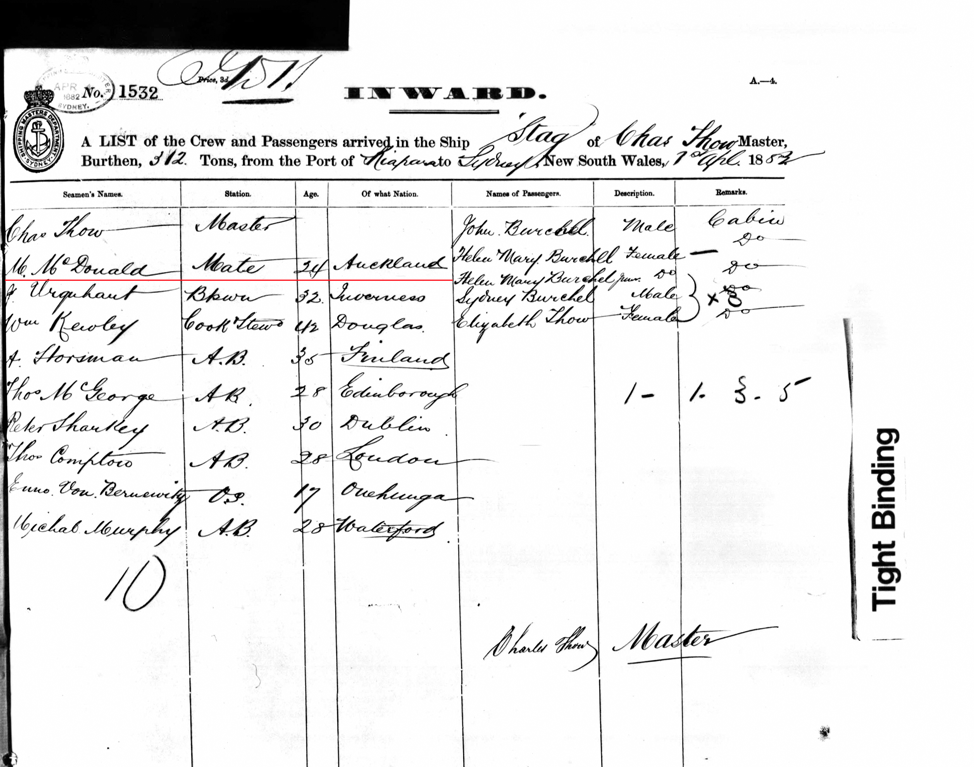 APR
1882
SYDNEY.
No. 1532
Price, 3d.
A.—4.
INWARD.
SHIPPING MASTERS DEPARTMENT SYDNEY
A LIST of the Crew and Passengers arrived in the Ship "Stag" of Chas Thow Master,
Burthen, 312 Tons, from the Port of Kaipara to Sydney New South Wales, 1st Apl. 1882
Seamen's Names. Station. Age. Of what Nation. Names of Passengers. Description. Remarks.
Chas Thow Master John Burchell Male Cabin
Helen Mary Burchell Female Do
M. McDonald Mate 24 Auckland Helen Mary Burchel junr. Do Do
J Urquhart Bkswn 32 Inverness Sydney Burchel Male Do
x 8
Wm Kewley Cook Stewd 42 Douglas. Elizabeth Thow Female Do
A. Storsman A.B. 35 Finland
Thos McGeorge AB. 28 Edinborough 1 - 1. 3. 5
Peter Sharkey A.B. 30 Dublin
Thos Compton AB. 28 London
Enno. Von. Bernewitz O.S. 17 Onehunga
Michal Murphy A.B. 28 Waterford
10
Charles Thow Master
Tight Binding